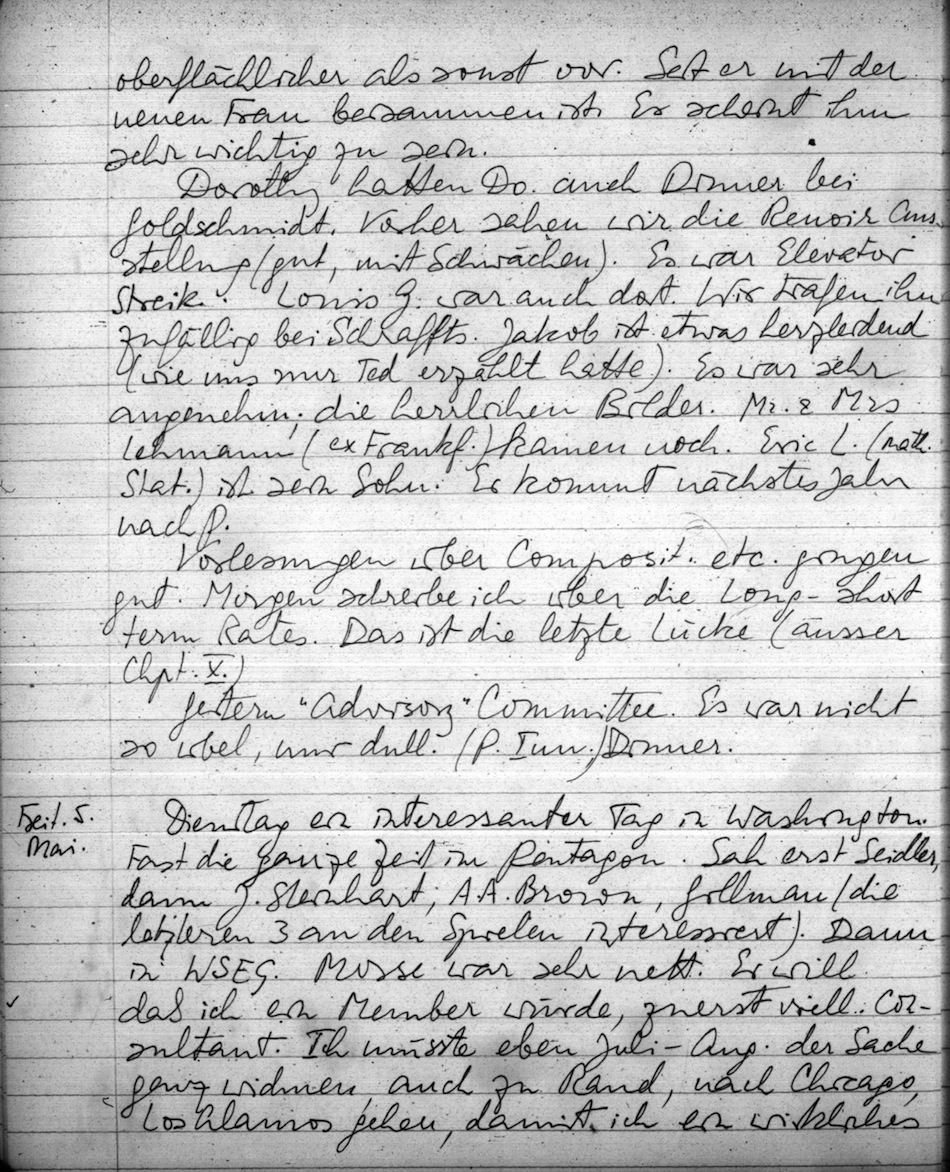 oberflächlicher als sonst vor. Seit er mit der
neuen Frau beisammen ist. Es scheint ihm
sehr wichtig zu sein.
Dorothy hatten Do. auch Dinner bei
Goldschmidt. Vorher sahen wir die Renoir Aus-
stellung (gut, mit Schwächen). Es war Elevator
Streik. Louis G. war auch dort. Wir trafen ihn
zufällig bei Schraffts. Jakob ist etwas herzleidend
(wie uns nur Ted erzählt hatte). Es war sehr
angenehm; die herrlichen Bilder. Mr. & Mrs
Lehmann (ex Frankf.) kamen noch. Eric L. (math.
Stat.) ist sein Sohn. Er kommt nächstes Jahr
nach P.
Vorlesungen über Composit. etc. gingen
gut. Morgen schreibe ich über die Long-short
term Rates. Das ist die letzte Lücke (ausser
Chpt. X.)
Gestern "Advisory" Committee. Es war nicht
so übel, nur dull. (P. Inn.) Dinner.
Freit. 5.
Mai.
Dienstag ein interessanter Tag in Washington.
Fast die ganze Zeit im Pentagon. Sah erst Seidler,
dann J. Steinhart, A.A. Brown, Gillman (die
letzteren 3 an den Spielen interessiert). Dann
in WSEG. Morse war sehr nett. Er will
daß ich ein Member würde, zuerst viell. Con-
sultant. Ich müsste eben Juli – Aug. der Sache
ganz widmen, auch zu Rand, nach Chicago,
Los Alamos gehen, damit ich ein wirkliches